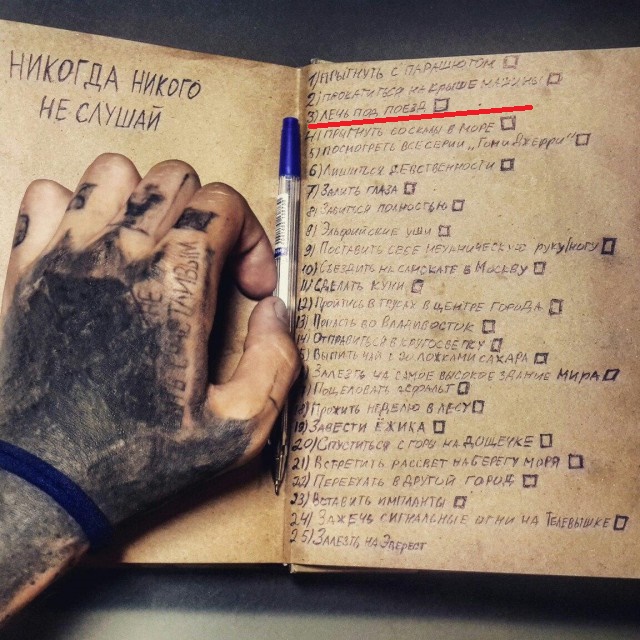 НИКОГДА НИКОГО
НЕ СЛУШАЙ
1) ПРЫГНУТЬ С ПАРАШЮТОМ
2) ПРОКАТИТЬСЯ НА КРЫШЕ МАШИНЫ
3) ЛЕЧЬ ПОД ПОЕЗД
4) ПРЫГНУТЬ СО СКАЛЫ В МОРЕ
5) ПОСМОТРЕТЬ ВСЕ СЕРИИ „Том и Джерри"
6) ЛИШИТЬСЯ ДЕВСТВЕННОСТИ
7) ЗАЛИТЬ ГЛАЗА
8) ЗАБИТЬСЯ ПОЛНОСТЬЮ
8) ЭЛЬФИЙСКИЕ УШИ
9) ПОСТАВИТЬ СЕБЕ МЕХАНИЧЕСКУЮ РУКУ/НОГУ
10) СЪЕЗДИТЬ НА СЛИПКАТЕ В МОСКВУ
11) СДЕЛАТЬ КУНИ
12) ПРОЙТИСЬ В ТРУСАХ В ЦЕНТРЕ ГОРОДА
13) ПОПАСТЬ ВО ВЛАДИВОСТОК
14) ОТПРАВИТЬСЯ В КРУГОСВЕТКУ
5) ВЫПИТЬ ЧАЙ С 20 ЛОЖКАМИ САХАРА
ЗАЛЕЗТЬ НА САМОЕ ВЫСОКОЕ ЗДАНИЕ МИРА
ПОЦЕЛОВАТЬ АСФАЛЬТ
18) ПРОЖИТЬ НЕДЕЛЮ В ЛЕСУ
19) ЗАВЕСТИ ЁЖИКА
20) СПУСТИТЬСЯ С ГОРЫ НА ДОЩЕЧКЕ
21) ВСТРЕТИТЬ РАССВЕТ НА БЕРЕГУ МОРЯ
22) ПЕРЕЕХАТЬ В ДРУГОЙ ГОРОД
23) ВСТАВИТЬ ИМПЛАНТЫ
24) ЗАЖЕЧЬ СИГНАЛЬНЫЕ ОГНИ НА ТЕЛЕВЫШКЕ
25) ЗАЛЕЗТЬ НА ЭВЕРЕСТ